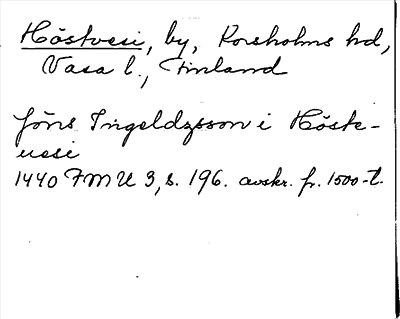 Höstvesi, by, Korsholms hd,
Vasa l., Finland
Jöns Ingeldzsson i Höste-
uesi
1440 FMU 3, s. 196. avskr. fr. 1500-t.